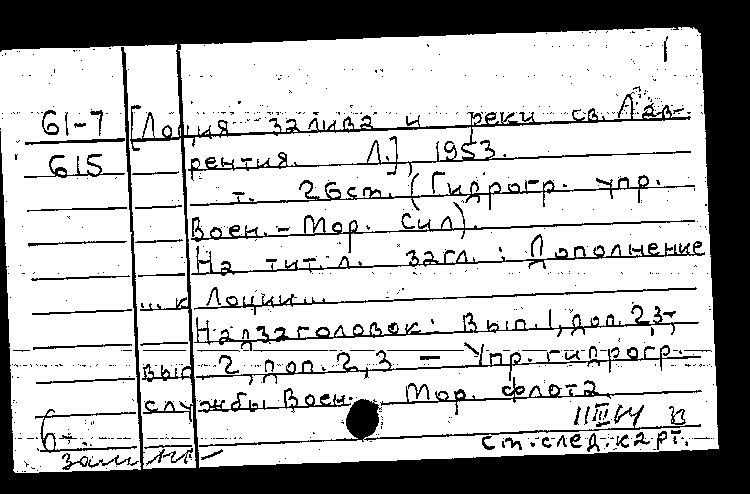 1
61-7 [Лоция залива и реки св. Лав-
615 рентия. Л.], 1953.
т. 26 см. (Гидрогр. упр.
Воен.-Мор. Сил).
На тит. л. загл.: Дополнение
... к Лоции...
Надзаголовок: Вып. 1, доп. 2,3;
вып. 2, доп. 2, 3 — Упр. гидрогр.
службы Воен. Мор. флота
11 III 64
6т. см. след. карт.